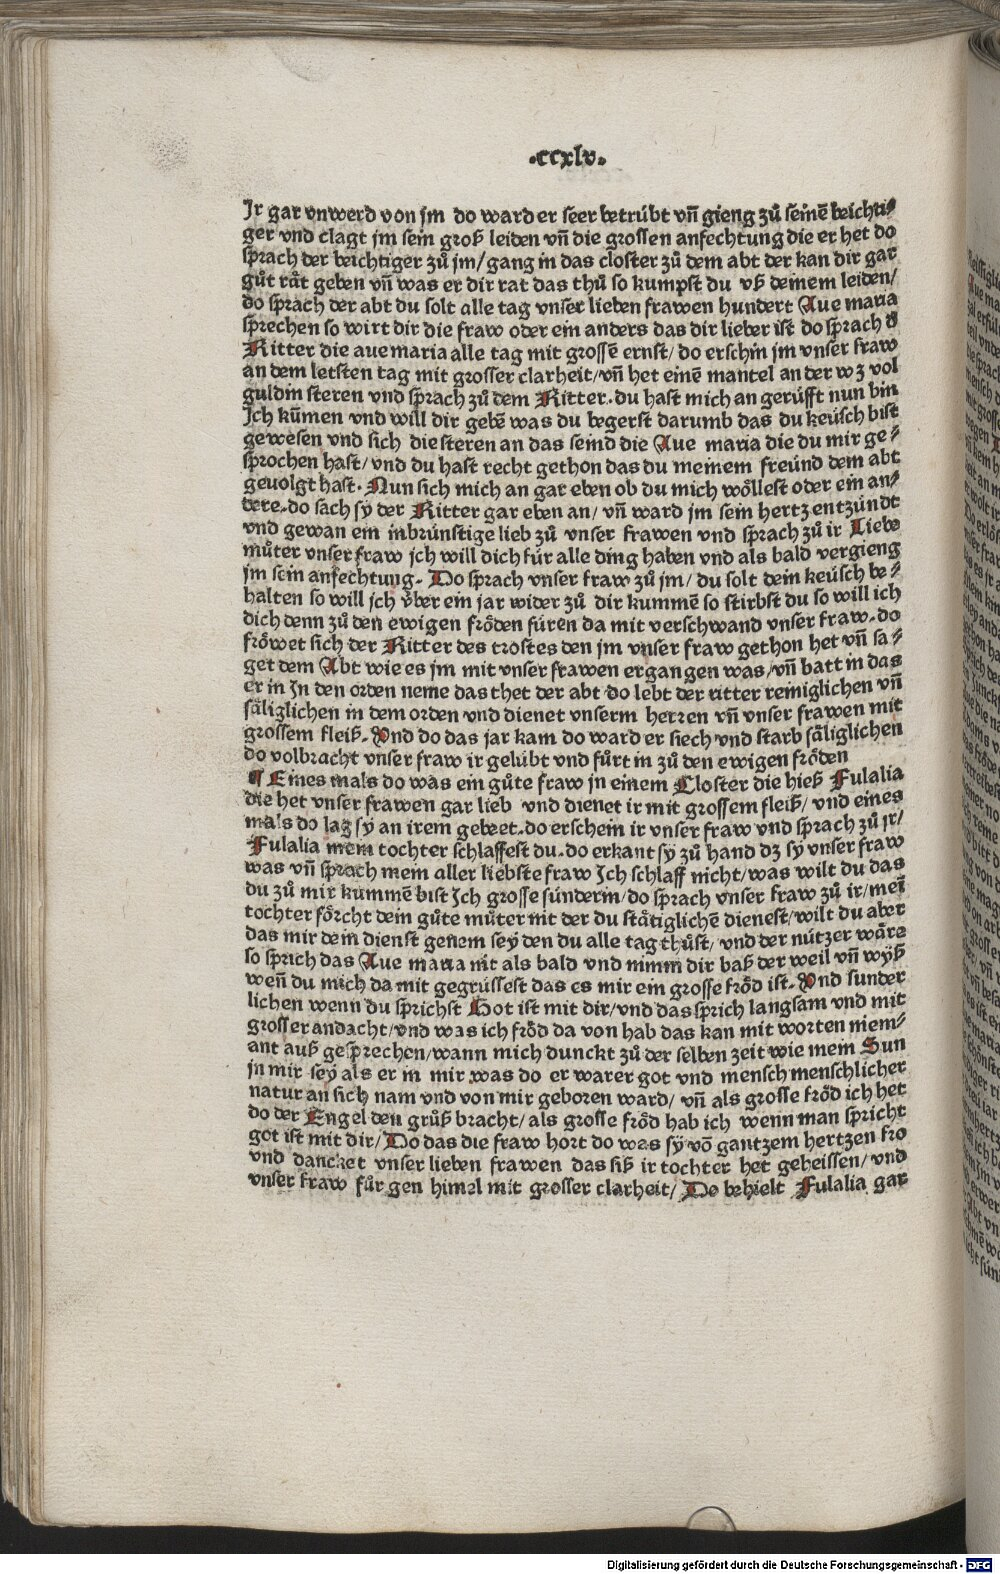 ·ccxlv·
Ir gar vnwerd von jm do ward er seer betrübt vn̄ gieng zů seinē beichti⸗
ger vnd clagt jm sein groß leiden vn̄ die grossen anfechtung die er het do
sprach der beichtiger zů jm/ gang in das closter zů dem abt der kan dir gar
gůt rät geben vn̄ was er dir rat das thů so kumpst du vß deinem leiden/
do sprach der abt du solt alle tag vnser lieben frawen hundert Aue maria
sprechen so wirt dir die fraw oder ein anders das dir lieber ist do sprach d̓
Ritter die aue maria alle tag mit grossē ernst/ do erschin jm vnser fraw
an dem letsten tag mit grosser clarheit/ vn̄ het einē mantel an der wz vol
guldin steren vnd sprach zů dem Ritter. du hast mich an gerüfft nun bin
Ich kūmen vnd will dir gebē was du begerst darumb das du keüsch bist
gewesen vnd sich die steren an das seind die Aue maria die du mir ge⸗
sprochen hast/ vnd du hast recht gethon das du meinem freünd dem abt
geuolgt hast. Nun sich mich an gar eben ob du mich wöllest oder ein an⸗
dere. do sach sy der Ritter gar eben an/ vn̄ ward jm sein hertz entzündt
vnd gewan ein inbrünstige lieb zů vnser frawen vnd sprach zů ir Liebe
můter vnser fraw jch will dich für alle ding haben vnd als bald vergieng
jm sein anfechtung. Do sprach vnser fraw zů jm/ du solt dein keüsch be⸗
halten so will jch über ein jar wider zů dir kummē so stirbst du so will ich
dich denn zů den ewigen fröden füren da mit verschwand vnser fraw. do
fröwet sich der Ritter des trostes den jm vnser fraw gethon het vn̄ sa⸗
get dem Abt wie es jm mit vnser frawen ergangen was/ vn̄ batt in das
er in In den orden neme das thet der abt do lebt der ritter reiniglichen vn̄
säliglichen in dem orden vnd dienet vnserm herren vn̄ vnser frawen mit
grossem fleiß. Vnd do das jar kam do ward er siech vnd starb säliglichen
do volbracht vnser fraw ir gelübt vnd fůrt in zů den ewigen fröden
¶ Eines mals do was ein gůte fraw in einem Closter die hieß Fulalia
die het vnser frawen gar lieb vnd dienet ir mit grossem fleiß/ vnd eines
mals do lag sy an irem gebeet. do erschein ir vnser fraw vnd sprach zů jr/
Fulalia mein tochter schlaffest du. do erkant sy zů hand dz sy vnser fraw
was vn̄ sprach mein aller liebste fraw Ich schlaff nicht/ was wilt du das
du zů mir kummē bist Ich grosse sünderin/ do sprach vnser fraw zů ir/ mei̅
tochter förcht dein gůte můter nit der du stätiglichē dienest/ wilt du aber
das mir dein dienst genem sey den du alle tag thůst/ vnd der nützer wäre
so sprich das Aue maria nit als bald vnd nimm dir baß der weil vn̄ wyß
wen̄ du mich da mit gegrüssest das es mir ein grosse fröd ist. Vnd sunder
lichen wenn du sprichst Got ist mit dir/ vnd das sprich langsam vnd mit
grosser andacht/ vnd was ich fröd da von hab das kan mit worten niem⸗
ant auß gesprechen/ wann mich dunckt zů der selben zeit wie mein Sun
jn mir sey als er in mir was do er warer got vnd mensch menschlicher
natur an sich nam vnd von mir geboren ward/ vn̄ als grosse fröd ich het
do der Engel den grůß bracht/ als grosse fröd hab ich wenn man spricht
got ist mit dir/ Do das die fraw hort do was sy vō gantzem hertzen fro
vnd dancket vnser lieben frawen das siß ir tochter het geheissen/ vnd
vnser fraw fůr gen himel mit grosser clarheit/ Do behielt Fulalia gar
Digitalisierung gefördert durch die Deutsche Forschungsgemeinschaft - DFG